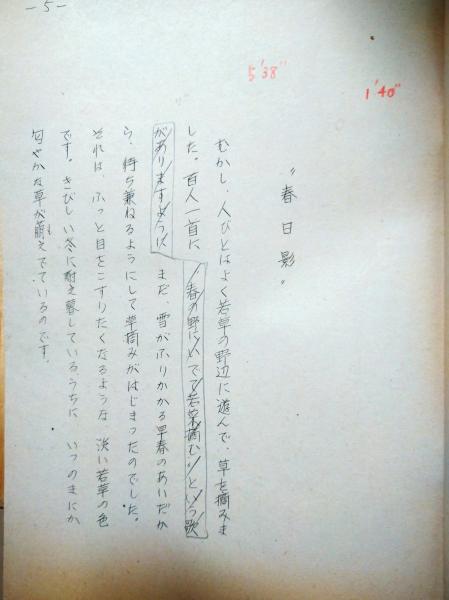 －5－
5'38"
1'40"
"春日影"
むかし、人びとはよく若草の野辺に遊んで、草を摘みま
した。百人一首に「春の野にいでて若菜摘む」という歌
がありますように まだ、雪がふりかかる早春のあいだか
ら、待ち兼ねるようにして草摘みがはじまったのでした。
それは、ふっと目をこすりたくなるような 淡い若草の色
です。きびしい冬に耐え暮しているうちに いつのまにか
匂やかな草が萌えでているのです。